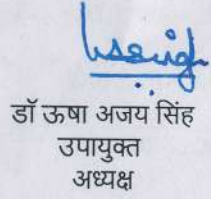 डॉ ऊषा अजय सिंह
उपायुक्त
अध्यक्ष